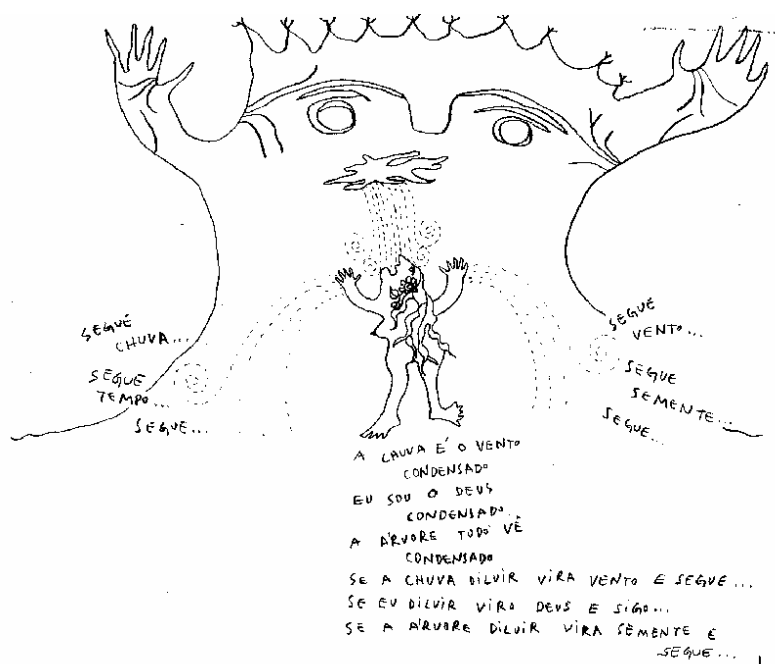 SEGUE
CHUVA...
SEGUE
TEMPO...
SEGUE...
SEGUE
VENTO...
SEGUE
SEMENTE...
SEGUE...
A CHUVA É O VENTO
CONDENSADO
EU SOU O DEUS
CONDENSADO...
A ÁRVORE TUDO VÊ
CONDENSADO
SE A CHUVA DILUIR VIRA VENTO E SEGUE...
SE EU DILUIR VIRO DEUS E SIGO...
SE A ÁRVORE DILUIR VIRA SEMENTE E
SEGUE...